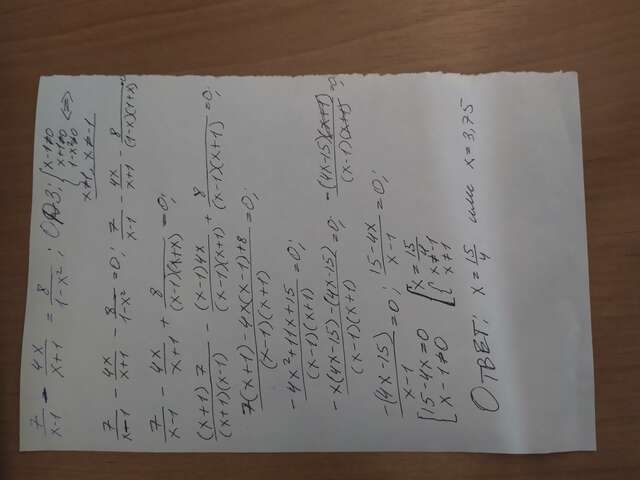 7/(x-1) - 4x/(x+1) = 8/(1-x²); ОДЗ: { x-1≠0 x+1≠0 1-x²≠0 <=>
x≠1, x≠-1
7/(x-1) - 4x/(x+1) - 8/(1-x²) = 0; 7/(x-1) - 4x/(x+1) - 8/((1-x)(1+x)) = 0
7/(x-1) - 4x/(x+1) + 8/((x-1)(1+x)) = 0;
(x+1)7/((x+1)(x-1)) - (x-1)4x/((x-1)(x+1)) + 8/((x-1)(x+1)) = 0;
(7(x+1) - 4x(x-1) + 8)/((x-1)(x+1)) = 0;
(-4x² + 11x + 15)/((x-1)(x+1)) = 0;
(-x(4x-15) - (4x-15))/((x-1)(x+1)) = 0; -(4x-15)(x+1)/((x-1)(x+1)) = 0;
-(4x-15)/(x-1) = 0; (15-4x)/(x-1) = 0;
[ 15-4x=0 x-1≠0 [ x=15/4 { x≠-1 x≠1
ОТВЕТ: x = 15/4 или x = 3,75